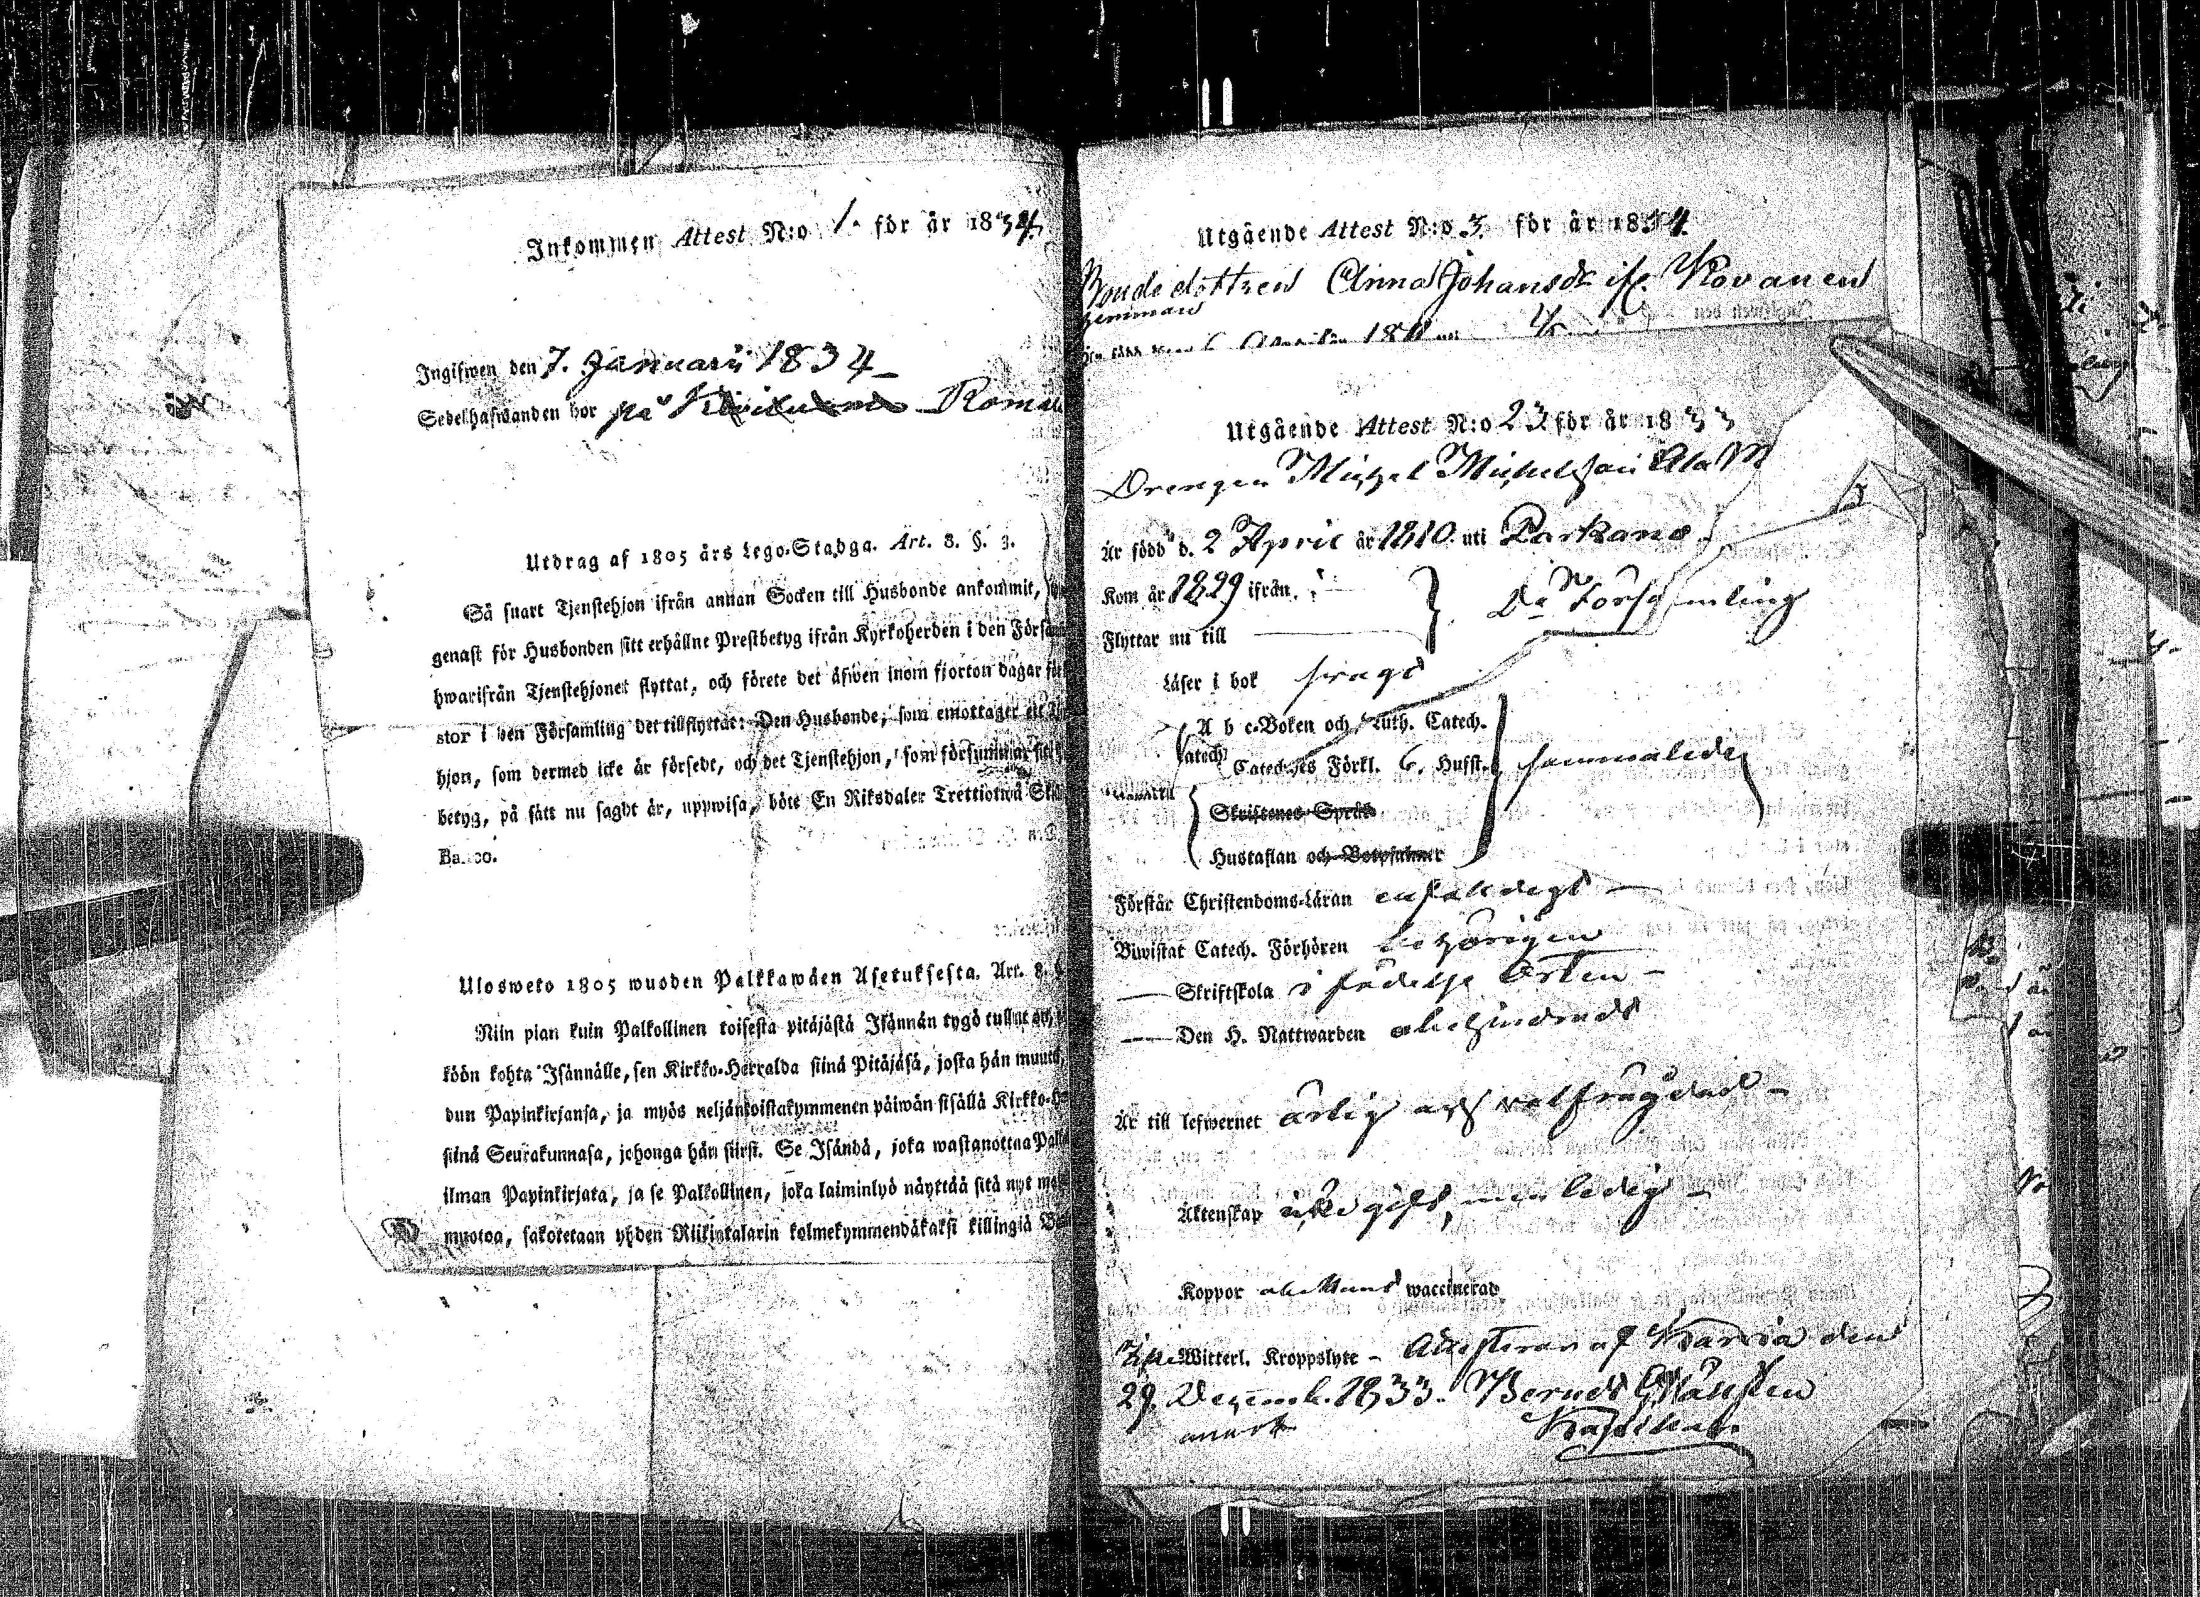 Inkommen Attest N:o 1. för år 1834.
Ingifwen den 7. Januarii 1834
Sedelhafwanden bor på
Utdrag af 1805 års Lego-Stadga. Art. 8. §. 3.
Så snart Tjenstehjon ifrån annan Socken till Husbonde ankommit,
genast för Husbonden sitt erhållne Prestbetyg ifrån Kyrkoherden i den
hwarifrån Tjenstehjonet flyttat, och förete det äfwen inom fjorton dagar
stor i den Församling det tillflyttat: Den Husbonde, som emottager ett
hjon, som dermed icke är försedt, och det Tjenstehjon, som försummar
betyg, på sätt nu sagdt är, uppwisa, böte En Riksdaler Trettiotwå
Banco.
Ulosweto 1805 wuoden Palkkawäen Asetuksesta. Art. 8.
Niin pian kuin Palkollinen toisesta pitäjästä Isännän tygö tullut on,
köön kohta Isännälle, sen Kirkko-Herralda siinä Pitäjäsä, josta hän
dun Papinkirjansa, ja myös neljäntoistakymmenen päiwän sisällä
siinä Seurakunnasa, johonga hän siirsi. Se Isändä, joka wastanottaa
ilman Papinkirjata, ja se Palkollinen, joka laiminlyö näyttää sitä nyt
muotoa, sakotetaan yhden Riikintalarin kolmekymmendäkaksi killingiä
Utgående Attest N:o 3. för år 1834.
Bondedottren Anna Johansdr
hemman
Utgående Attest N:o 23 för år 1833
Drengen Michel Michelsson Ala
Är född d. 2 April år 1810 uti Parkano
Kom år 1829 ifrån
Flyttar nu till
Da Församling
Läser i bok
A b c-Boken och Luth. Catech.
Catech
Cateches Förkl. Husst.
sammaledes
Skriftenes Språk
Hustaflan och Botpsalmer
Förstår Christendoms-Läran enfaldigt
Biwistat Catech. Förhören behörigen
Skriftskola i födelse Orten
Den H. Nattwarden obehindrad
Är till lefwernet ärlig och välfrägdad
Äktenskap icke gift, men ledig
Koppor waccinerad
Witterl. Kroppslyte - Attesteras af Karvia den
29. Decemb. 1833.